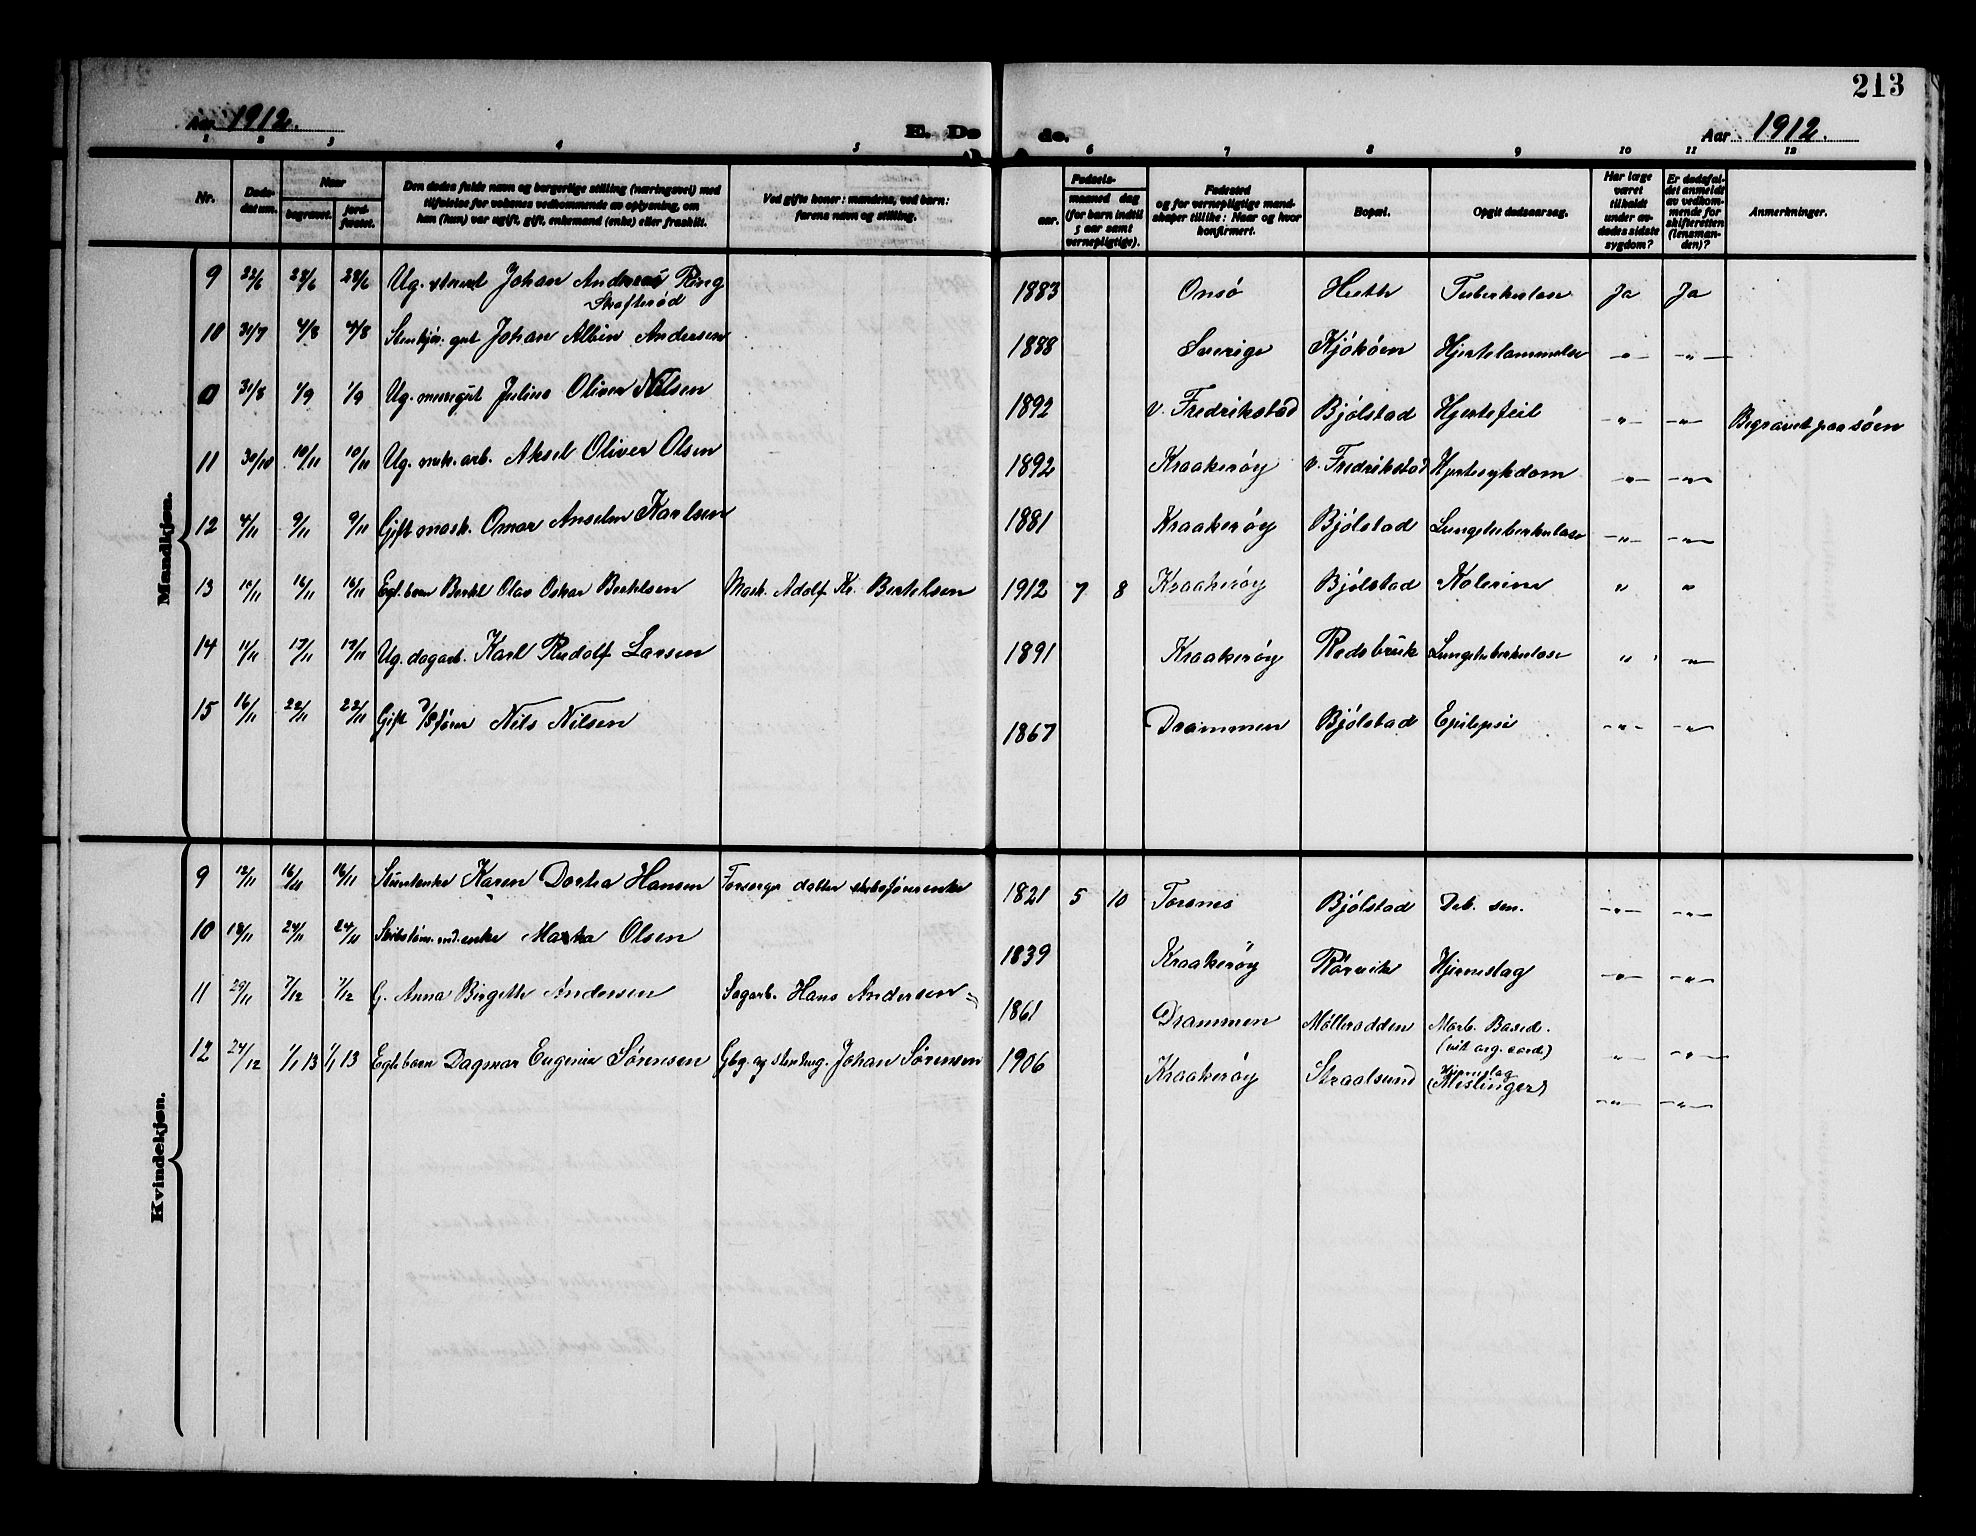 213
Aar 1912.
E. Dø
de.
Aar 1912.
1 2 3 4 5 6 7 8 9 10 11 12
Nr.
Døds-
datum.
Naar
begravet.
jord-
fæstet.
Den dødes fulde navn og borgerlige stilling (næringsvei) med
tilføielse for voksnes vedkommende av oplysning, om
han (hun) var ugift, gift, enkemand (enke) eller fraskilt.
Ved gifte koner: mandens, ved barn:
farens navn og stilling.
Fødsels-
aar.
maaned dag
(for barn indtil
5 aar samt
vernepligtige).
Fødested
og for vernepligtige mand-
skaper tillike: Naar og hvor
konfirmert.
Bopæl.
Opgit dødsaarsag.
Har læge
været
tilkaldt
under av-
dødes sidste
sygdom?
Er dødsfal-
det anmeldt
av vedkom-
mende for
skifteretten
(lensman-
den)?
Anmerkninger.
Mandkjøn.
9 22/6 28/6 28/6 Ug. Johan Andreas Ring 1883 Onsö Huth Tuberkulose Ja Ja
Skofteröd
10 31/7 4/8 4/8 Stenhjør. gut Johan Albin Andersen 1888 Sverige Kjököen Hjertelammelse -"- -"-
31/8 1/9 1/9 Ug. murergut Julius Oliver Nilsen 1892 v. Fredrikstad Bjölstad Hjertefeil -"- -"- Begravet paa søen
11 30/10 10/11 10/11 Ug. mek. arb. Aksel Oliver Olsen 1892 Kraakeröy v. Fredrikstad Hjertesykdom -"- -"-
12 4/11 9/11 9/11 Gift mask. Omar Anselm Karlsen 1881 Kraakeröy Bjölstad Lungetuberkulose -"- -"-
13 10/11 16/11 16/11 Egt. barn Bertel Olav Oskar Bertelsen Mask. Adolf Kr. Bertelsen 1912 7 8 Kraakeröy Bjölstad Kolerine " "
14 11/11 17/11 17/11 Ug. dagarb. Karl Rudolf Larsen 1891 Kraakeröy Rødsbruk Lungetuberkulose " -"-
15 16/11 22/11 22/11 Gift Nils Nilsen 1867 Drammen Bjölstad Epilepsi -"- -"-
Kvindekjøn.
9 12/11 16/11 16/11 Karen Dortea Hansen Forsørges datter skibsførerenke 1821 5 10 Torsnes Bjölstad Deb. sen. -"- -"-
10 18/11 24/11 24/11 Skibstøm. md. enke Martha Olsen 1839 Kraakeröy Rörvik Hjerneslag -"- -"-
11 29/11 7/12 7/12 G. Anna Birgethe Andersen Sagarb. Hans Andersen 1861 Drammen Mølleodden Morb. Based.
(vit. org. cordis) -"- -"-
12 24/12 1/1 13 1/1 13 Egte barn Dagmar Eugenia Sørensen Gbg. og stenhug. Johan Sørensen 1906 Kraakeröy Straalsund Hjerneslag
(Meslinger) -"- -"-